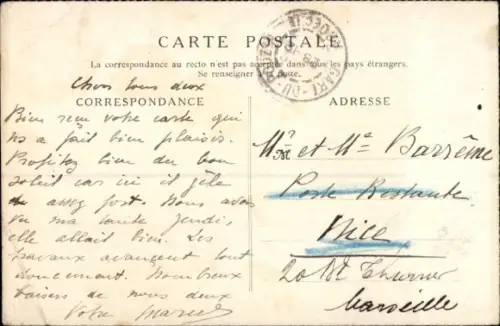 CARTE POSTALE
La correspondance au recto n'est pas acceptée dans tous les pays étrangers.
Se renseigner à la poste.
CORRESPONDANCE
Chers tous deux
Bien reçu votre carte qui
ns a fait bien plaisir.
Profitez bien du bon
soleil car ici il gèle
assez fort. Nous avons
vu ma tante jeudi,
elle allait bien. Les
travaux avancent tout
doucement. Nombreux
baisers de nous deux
Votre Marcel
ADRESSE
Mr et Me Barrême
Poste Restante
Nice
20 Bd Thurner
Marseille